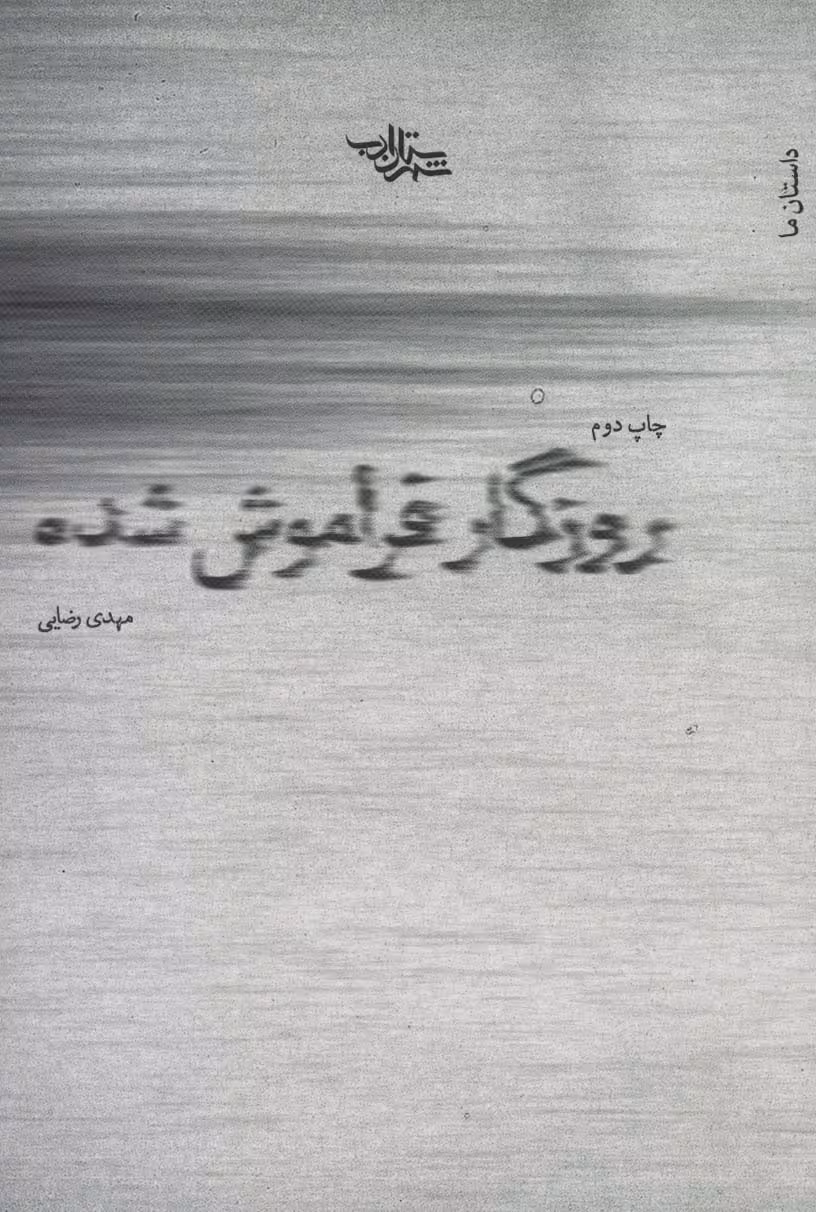 شهرستان ادب
داستان ما
چاپ دوم
روزگار فراموش شده
مهدی رضایی